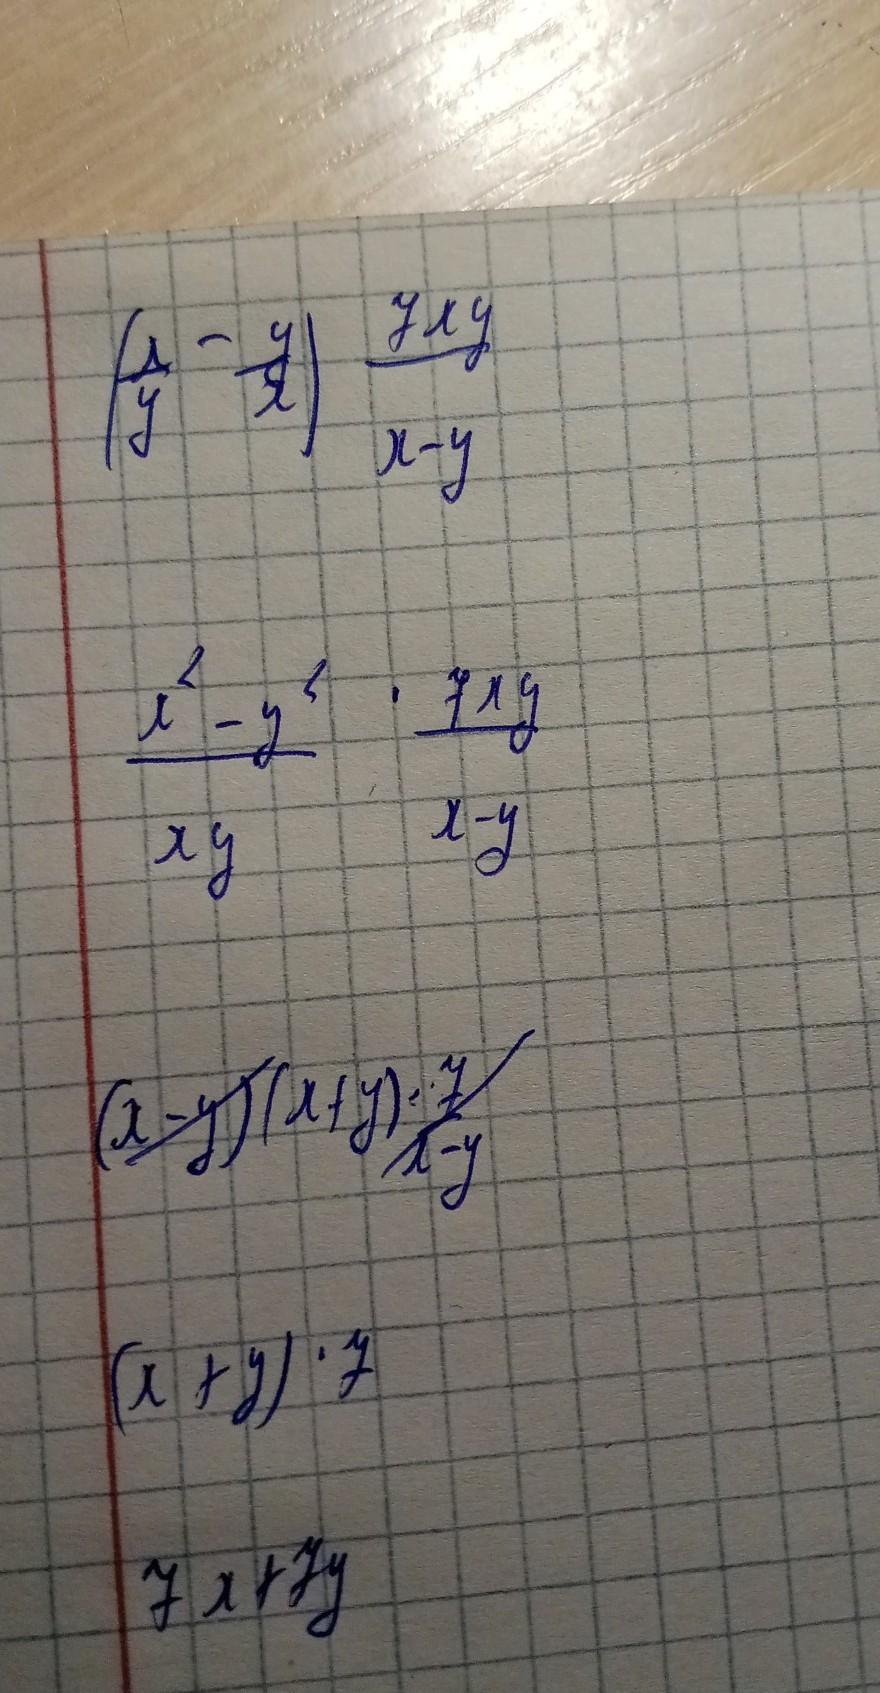 (x/y - y/x) 7xy/(x-y)
(x² - y²)/(xy) · 7xy/(x-y)
(x-y)(x+y) · 7/(x-y)
(x + y) · 7
7x+7y